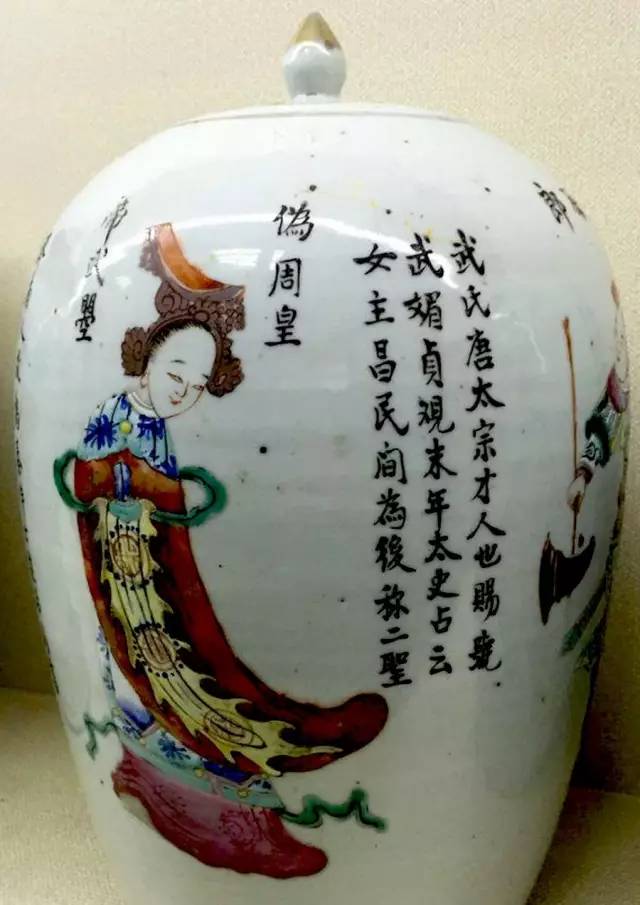 郎
武氏唐太宗才人也賜號
武媚貞覌末年太史占云
女主昌民間為後称二聖
偽周皇
帝武曌